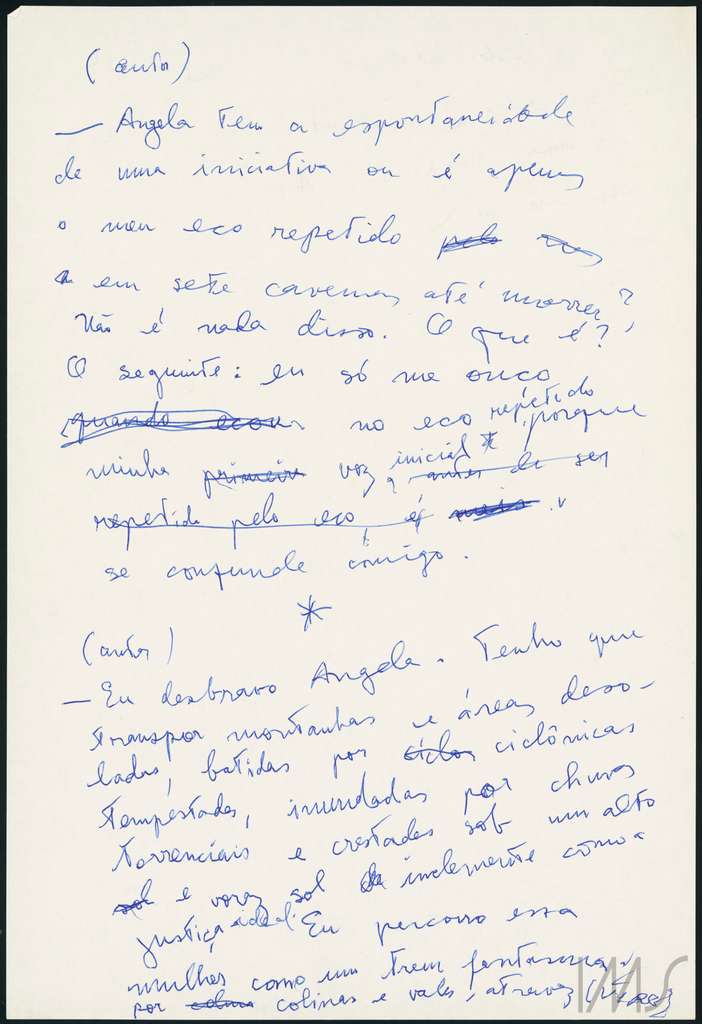 (autor)
— Angela tem a espontaneidade
de uma iniciativa ou é apenas
o meu eco repetido pelo
em sete cavernas até morrer?
Não é nada disso. O que é?
O seguinte: eu só me ouço
quando ecou no eco repetido, porque
minha primeira voz inicial * antes de ser
repetida pelo eco, é mais
se confunde comigo.
*
(autor)
— Eu desbravo Angela. Tenho que
transpor montanhas e áreas deso-
ladas, batidas por ciclos ciclônicas
tempestades, inundadas por chuvas
torrenciais e crestadas sob um alto
sol e voraz sol inclemente como a
justiça ideal. Eu percorro essa
mulher como um trem fantasma,
por colinas e vales, através
IMS